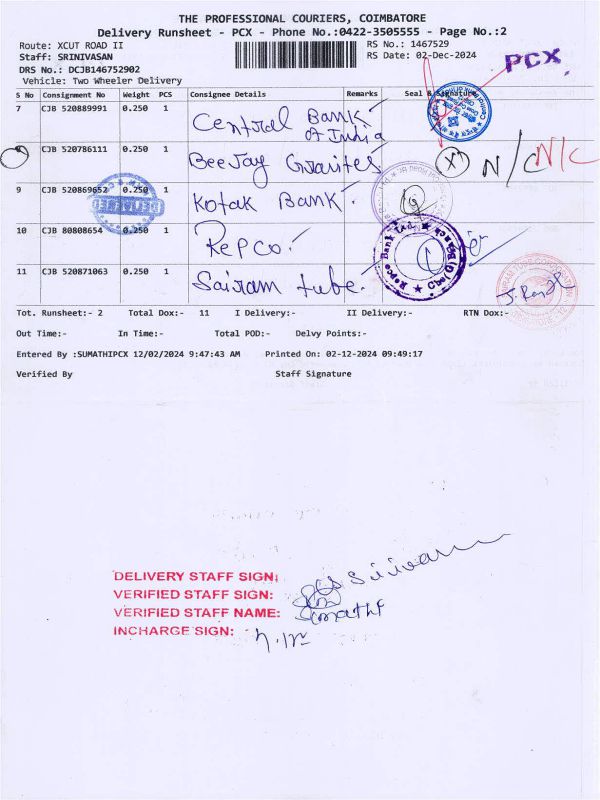 THE PROFESSIONAL COURIERS, COIMBATORE
Delivery Runsheet - PCX - Phone No.:0422-3505555 - Page No.:2
Route: XCUT ROAD II
RS No.: 1467529
Staff: SRINIVASAN
RS Date: 02-Dec-2024
PCX
DRS No.: DCJB146752902
Vehicle: Two Wheeler Delivery
S No Consignment No Weight PCS Consignee Details Remarks Seal & Signature
7 CJB 520889991 0.250 1 Central Bank
of India
8 CJB 520786111 0.250 1 BeeJay Granites N/C N/C
9 CJB 520869652 0.250 1 Kotak Bank
10 CJB 80808654 0.250 1 Repco
Repco Bank Ltd.
11 CJB 520871063 0.250 1 Sairam tube
Tot. Runsheet:- 2 Total Dox:- 11 I Delivery:- II Delivery:- RTN Dox:-
Out Time:- In Time:- Total POD:- Delvy Points:-
Entered By :SUMATHIPCX 12/02/2024 9:47:43 AM Printed On: 02-12-2024 09:49:17
Verified By Staff Signature
DELIVERY STAFF SIGN:
VERIFIED STAFF SIGN:
VERIFIED STAFF NAME: Sumathi
INCHARGE SIGN: